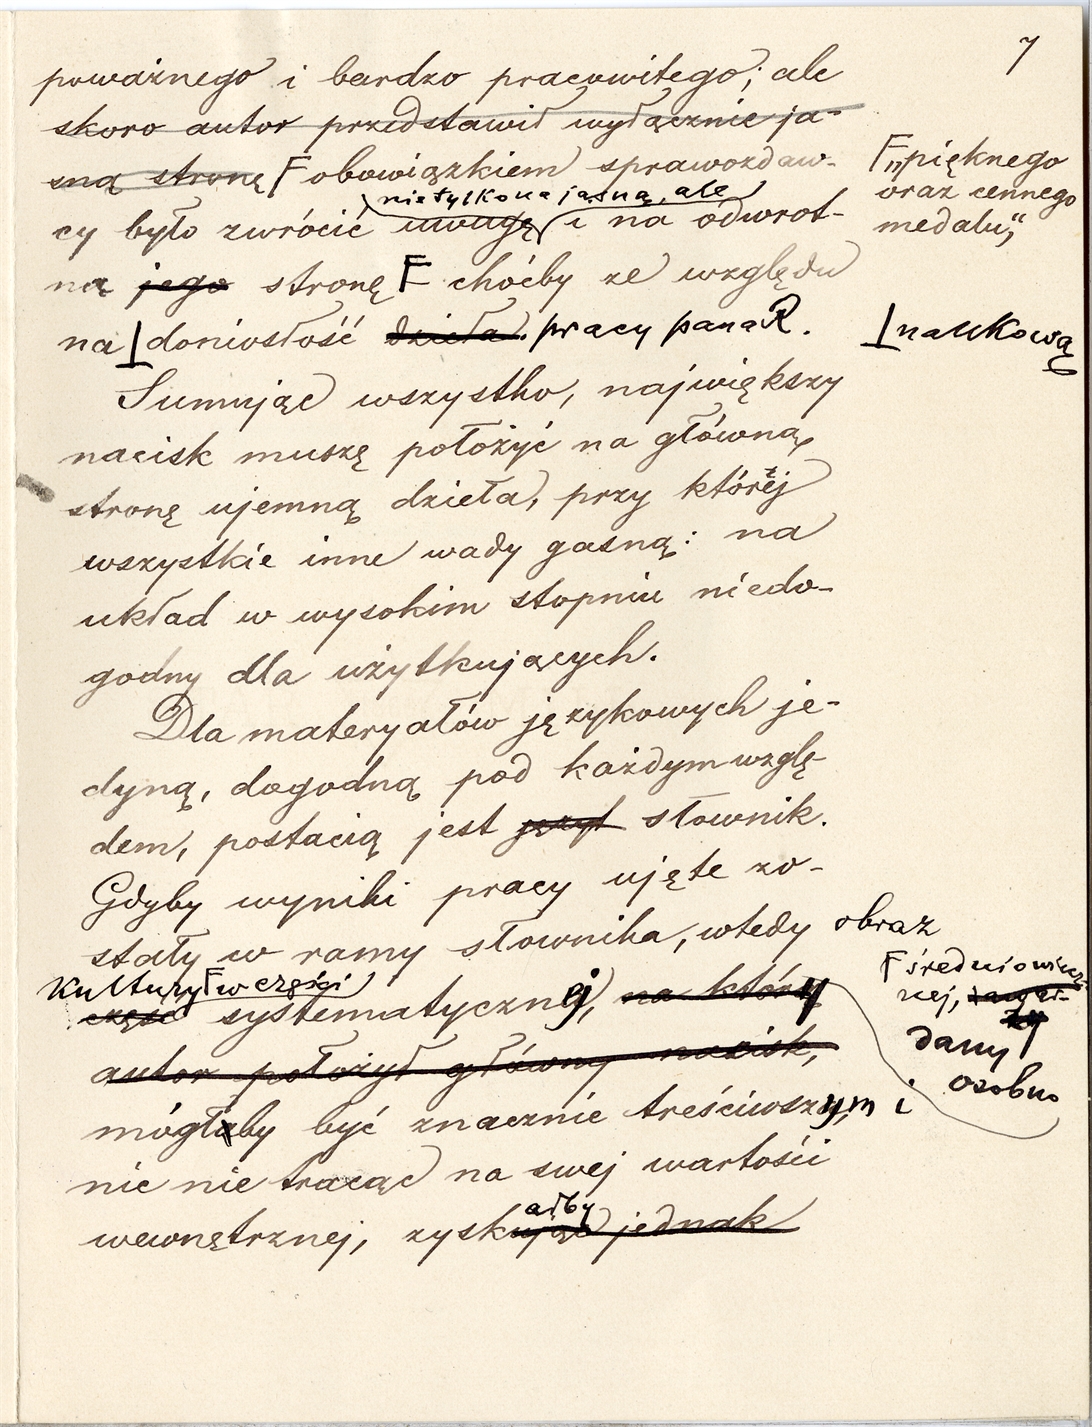 7
poważnego i bardzo pracowitego; ale
skoro autor przedstawił wyłącznie ja-
sną stronę F obowiązkiem sprawozdaw-
F „pięknego
oraz cennego
medalu";
nietylko na jasną, ale
cy było zwrócić uwagę i na odwrot-
ną jego stronę F choćby ze względu
na ⊥ doniosłość dzieła. pracy pana R.
⊥ naukową
Sumując wszystko, największy
nacisk muszę położyć na główną
stronę ujemną dzieła, przy którejż
wszystkie inne wady gasną: na
układ w wysokim stopniu niedo-
godny dla użytkujących.
Dla materyałów językowych je-
dyną, dogodną pod każdym wzglę-
dem, postacią jest słownik.
Gdyby wyniki pracy ujęte zo-
stały w ramy słownika, wtedy obraz
kultury F w części
część systematycznej, na który
F średniowiecz
nej,
dany
osobno
autor położył główny nacisk,
mógłby być znacznie treściwszym i
nic nie tracąc na swej wartości
ałby
wewnętrznej, zyskując jednak